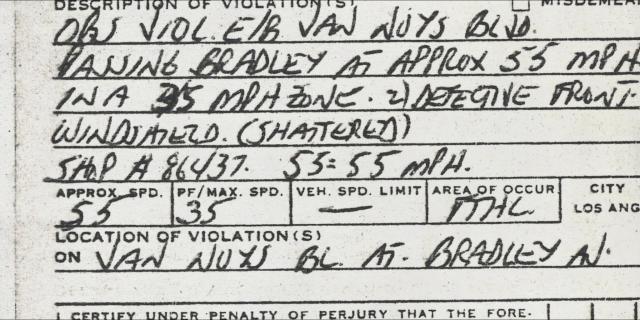 DESCRIPTION OF VIOLATION(S) MISDEMEA
OBS VIOL. E/B VAN NUYS BLVD.
PASSING BRADLEY AT APPROX 55 MPH
IN A 35 MPH ZONE. 2) DEFECTIVE FRONT
WINDSHIELD. (SHATTERED)
SHOP # 86437. 55=55 MPH.
APPROX. SPD. PF/MAX. SPD. VEH. SPD. LIMIT AREA OF OCCUR CITY
55 35 — LOS ANG
LOCATION OF VIOLATION(S)
ON VAN NUYS BL. AT. BRADLEY AV.
I CERTIFY UNDER PENALTY OF PERJURY THAT THE FORE-